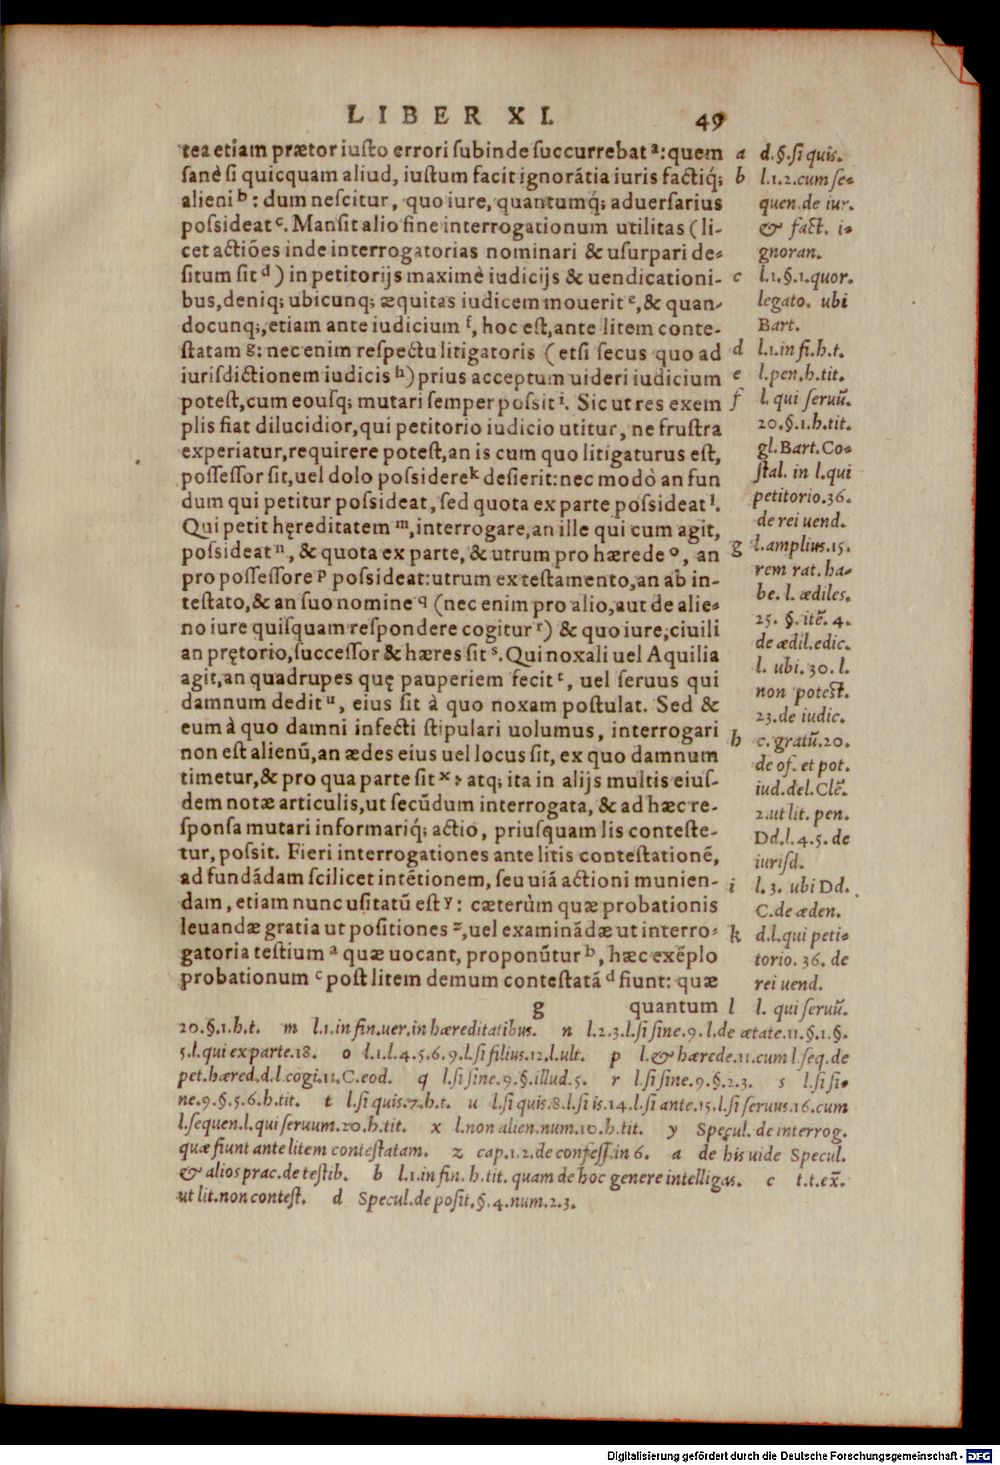 LIBER XI. 49
tea etiam prætor iusto errori subinde succurrebat a: quem
sanè si quicquam aliud, iustum facit ignorãtia iuris factiq́;
alieni b: dum nescitur, quo iure, quantumq́; aduersarius
possideat c. Mansit alio fine interrogationum utilitas (li-
cet actiões inde interrogatorias nominari & usurpari de-
situm sit d) in petitorijs maximè iudicijs & uendicationi-
bus, deniq; ubicunq; æquitas iudicem mouerit e, & quan-
docunq;, etiam ante iudicium f, hoc est, ante litem conte-
statam g: nec enim respectu litigatoris (etsi secus quo ad
iurisdictionem iudicis h) prius acceptum uideri iudicium
potest, cum eousq; mutari semper possit i. Sic ut res exem
plis fiat dilucidior, qui petitorio iudicio utitur, ne frustra
experiatur, requirere potest, an is cum quo litigaturus est,
possessor sit, uel dolo possidere k desierit: nec modò an fun
dum qui petitur possideat, sed quota ex parte possideat l.
Qui petit hęreditatem m, interrogare, an ille qui cum agit,
possideat n, & quota ex parte, & utrum pro hærede o, an
pro possessore p possideat: utrum ex testamento, an ab in-
testato, & an suo nomine q (nec enim pro alio, aut de alie-
no iure quisquam respondere cogitur r) & quo iure, ciuili
an prętorio, successor & hæres sit s. Qui noxali uel Aquilia
agit, an quadrupes quę pauperiem fecit t, uel seruus qui
damnum dedit u, eius sit à quo noxam postulat. Sed &
eum à quo damni infecti stipulari uolumus, interrogari
non est alienũ, an ædes eius uel locus sit, ex quo damnum
timetur, & pro qua parte sit x, atq; ita in alijs multis eius-
dem notæ articulis, ut secũdum interrogata, & ad hæc re-
sponsa mutari informariq́; actio, priusquam lis conteste-
tur, possit. Fieri interrogationes ante litis contestationē,
ad fundãdam scilicet intētionem, seu uiã actioni munien-
dam, etiam nunc usitatũ est y: cæterùm quæ probationis
leuandæ gratia ut positiones z, uel examinãdæ ut interro-
gatoria testium a quæ uocant, proponũtur b, hæc exēplo
probationum c post litem demum contestatã d fiunt: quæ
g quantum
a d.§.si quis.
b l.1.2.cum se-
quen.de iur.
& fact. i-
gnoran.
c l.1.§.1.quor.
legato. ubi
Bart.
d l.1.in fi.h.t.
e l.pen.h.tit.
f l. qui seruũ.
20.§.1.h.tit.
gl.Bart.Co-
stal. in l.qui
petitorio.36.
de rei uend.
g l.amplius.15.
rem rat. ha-
be. l. ædiles.
25. §. itē. 4.
de ædil.edic.
l. ubi.30. l.
non potest.
23.de iudic.
h c. gratũ.20.
de of. et pot.
iud.del.Clē.
2.ut lit. pen.
Dd.l.4.5.de
iurisd.
i l.3. ubi Dd.
C.de æden.
k d.l.qui peti-
torio. 36. de
rei uend.
l l. qui seruũ.
20.§.1.h.t. m l.1.in fin.uer.in hæreditatibus. n l.2.3.l.si sine.9.l.de ætate.11.§.1.§.
5.l.qui ex parte.18. o l.1.l.4.5.6.9.l.si filius.12.l.ult. p l.& hærede.11.cum l.seq.de
pet.hæred.d.l.cogi.11.C.eod. q l.si sine.9.§.illud.5. r l.si sine.9.§.2.3. s l.si si-
ne.9.§.5.6.h.tit. t l.si quis.7.h.t. u l.si quis.8.l.si is.14.l.si ante.15.l.si seruus.16.cum
l.sequen.l.qui seruum.20.h.tit. x l.non alien.num.10.h.tit. y Specul. de interrog.
quæ fiunt ante litem contestatam. z cap.1.2.de confess.in 6. a de his uide Specul.
& alios prac.de testib. b l.1.in fin. h.tit. quam de hoc genere intelligas. c t.t.ex̃.
ut lit.non contest. d Specul.de posit.§.4.num.2.3.
Digitalisierung gefördert durch die Deutsche Forschungsgemeinschaft - DFG